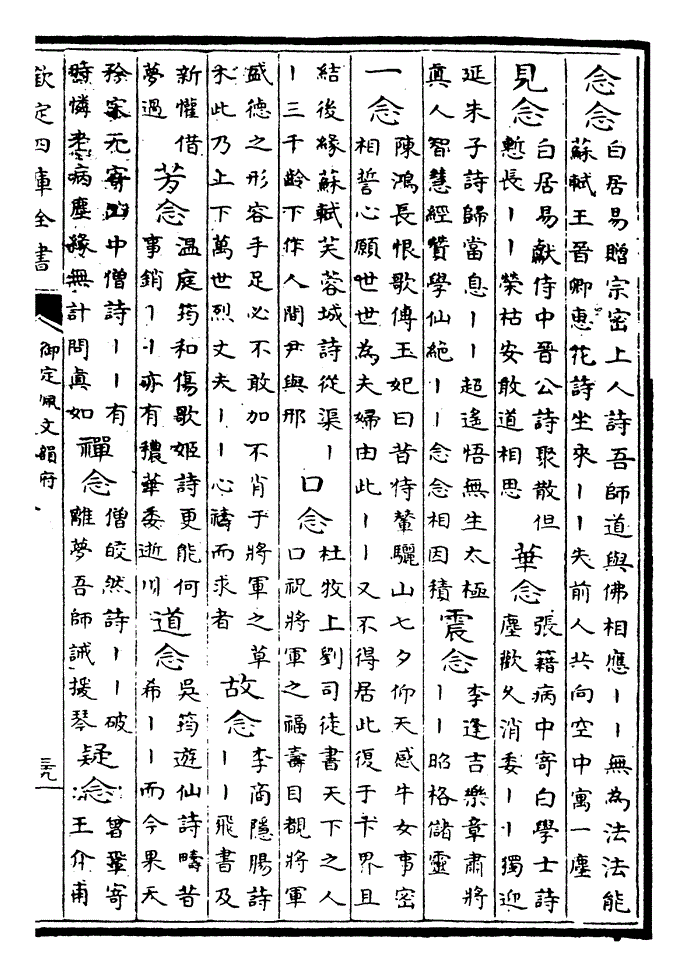 念念 白居易贈宗密上人詩吾師道與佛相應丨丨無為法法能
蘇軾王晉卿惠花詩坐來丨丨失前人共向空中寓一塵
見念 白居易獻侍中晉公詩聚散但
慙長丨丨榮枯安敢道相思
華念 張籍病中寄白學士詩
塵歡久消委丨丨獨迎
延朱子詩歸當息丨丨超遙悟無生太極
真人智慧經贊學仙絕丨丨念念相因積
震念 李逢吉樂章肅將
丨丨昭格儲靈
一念 陳鴻長恨歌傳玉妃曰昔侍輦驪山七夕仰天感牛女事密
相誓心願世世為夫婦由此丨丨又不得居此復于下界且
結後緣蘇軾芙蓉城詩從渠丨
丨三千齡下作人間尹與邢
口念 杜牧上劉司徒書天下之人
口祝將軍之福壽目覩將軍
盛德之形容手足必不敢加不肖于將軍之草
木此乃上下萬世烈丈夫丨丨心禱而求者
故念 李商隱腸詩
丨丨飛書及
新懽借
夢過
芳念 温庭筠和傷歌姬詩更能何
事銷丨丨亦有穠華委逝川
道念 吳筠遊仙詩疇昔
希丨丨而今果天
矜寀元寄山中僧詩丨丨有
時憐老病塵緣無計問真如
禪念 僧皎然詩丨丨破
離夢吾師誡援琴
疑念 曾鞏寄
王介甫
欽定四庫全書
御定佩文韻府
三九